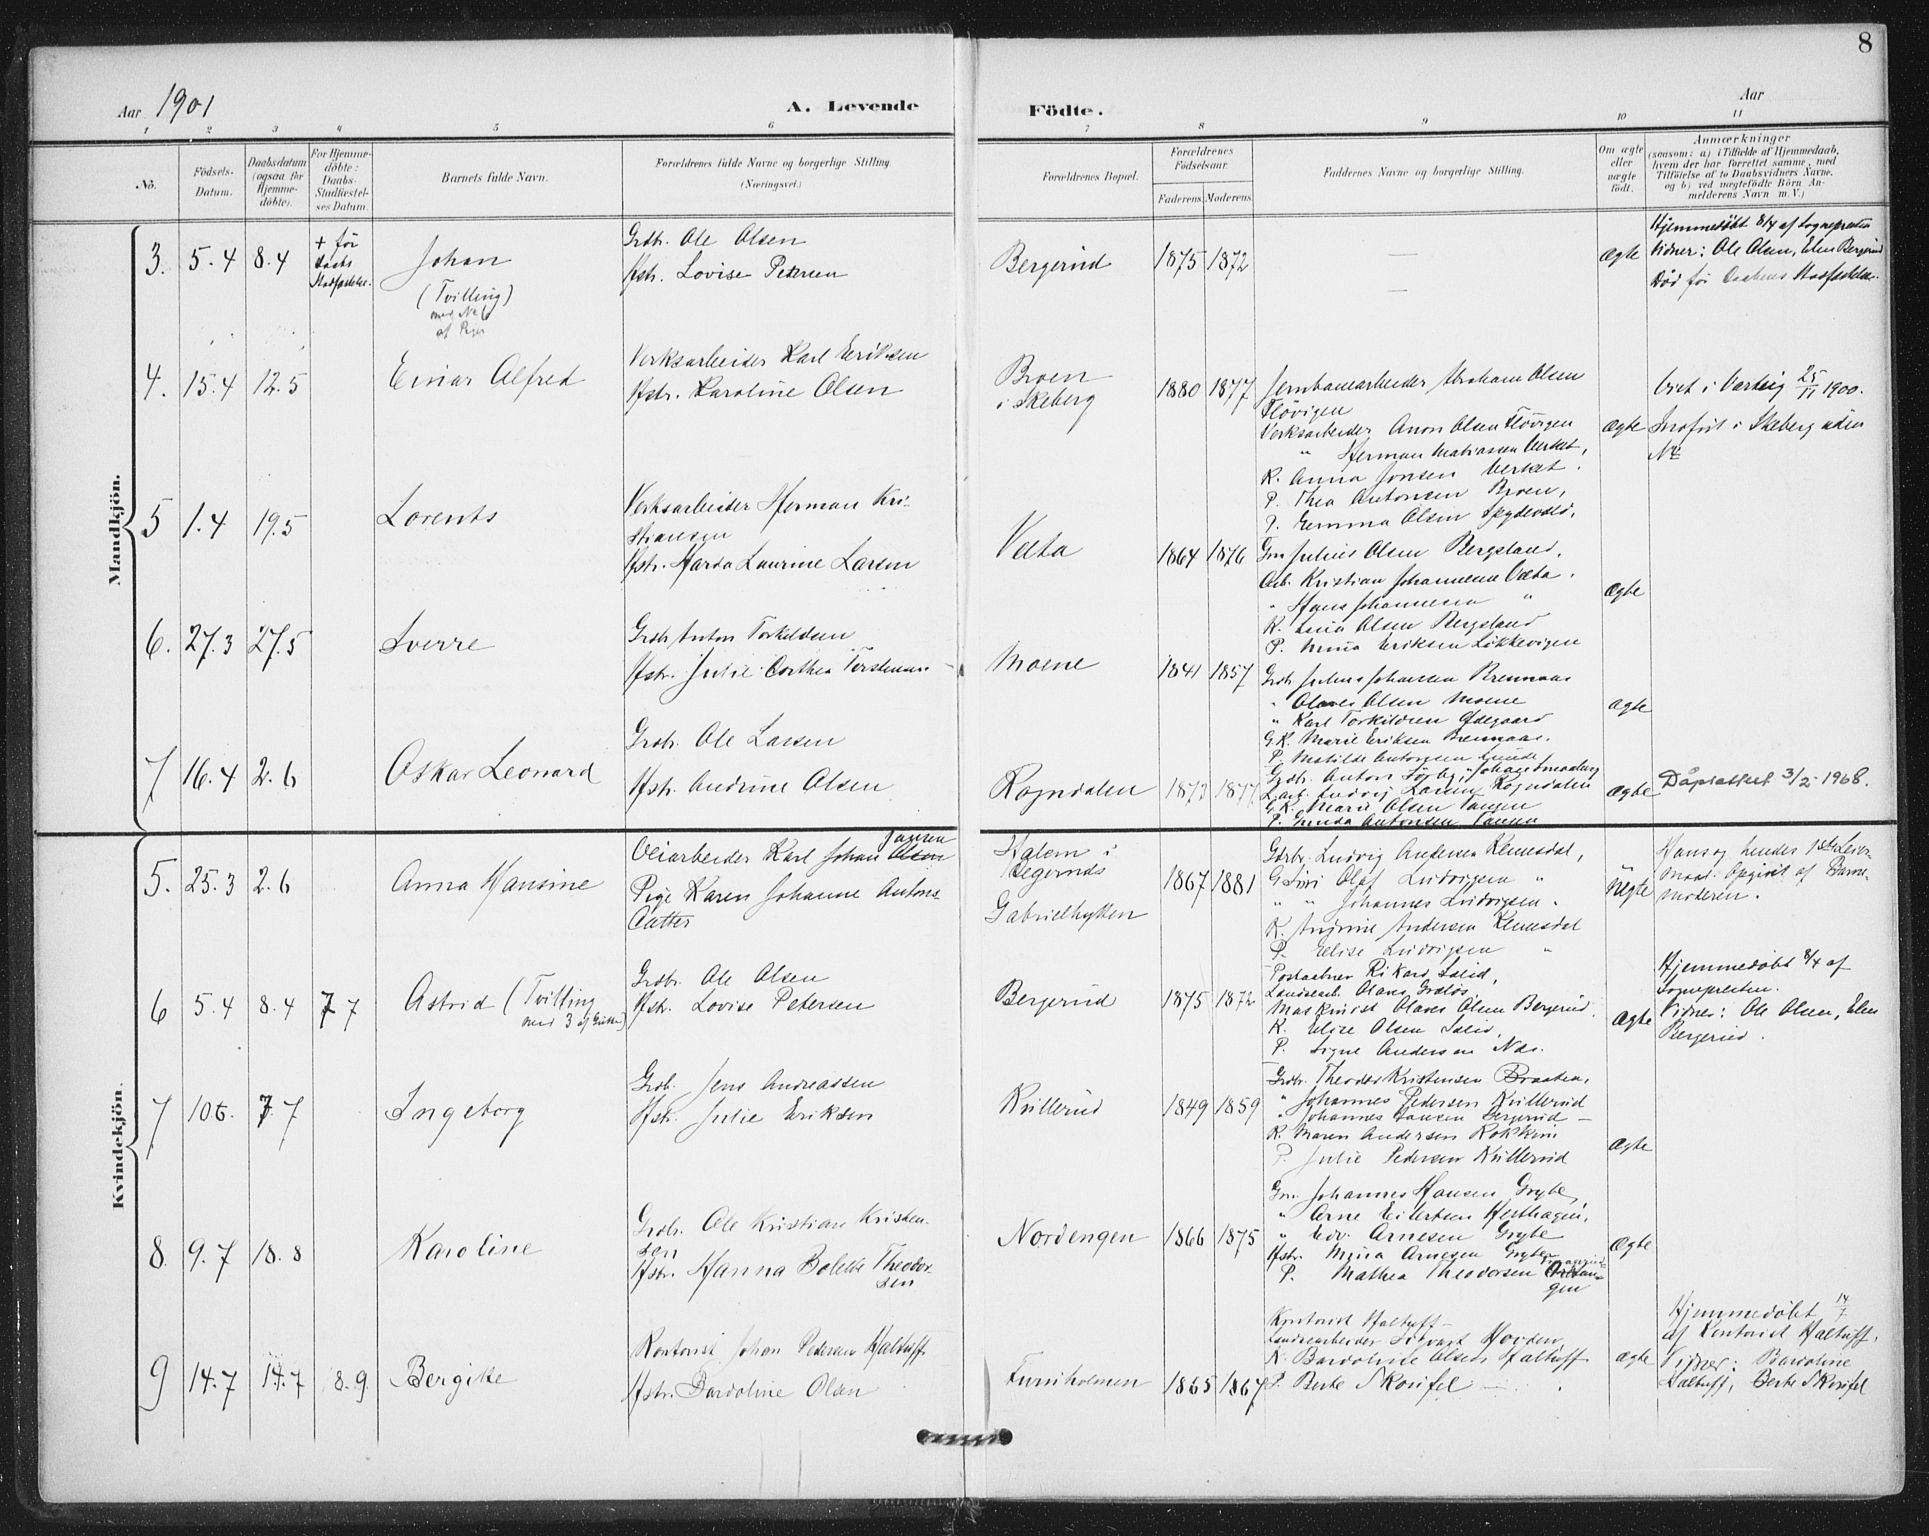 8
Aar 1901
A. Levende Födte.
Aar
1 2 3 4 5 6 7 8 9 10 11
No.
Födsels-Datum.
Daabsdatum (ogsaa for Hjemme-döbte).
For Hjemme-döbte: Daabs-Stadfæstel-ses Datum.
Barnets fulde Navn.
Forældrenes fulde Navne og borgerlige Stilling.
(Næringsvei.)
Forældrenes Bopæl.
Forældrenes Födselsaar.
Faderens Moderens
Faddernes Navne og borgerlige Stilling.
Om ægte eller uægte födt.
Anmærkninger
(saasom: a) i Tilfælde af Hjemmedaab, hvem der har forrettet samme, med Tilföielse af to Daabsvidners Navne, og b) ved uægtefödte Börn An-melderens Navn m. V.)
Mandkjön.
3. 5.4 8.4 + før Daabs Stadfæstelse.
Johan
(Tvilling)
med No 6
af Piger
Grdbr. Ole Olsen
Hstr. Lovise Petersen
Bergerud 1875 1872
—
—
ægte
Hjemmedøbt 8/4 af Sognepresten
Vidner: Ole Olsen, Elen Bergerud
Død før Daabens Stadfæstelse.
4. 15.4 12.5
Einar Alfred
Verksarbeider Karl Eriksen
Hstr. Karoline Olsen
Broen
i Skeberg
1880 1877
Jernbanearbeider Abraham Olsen
Fløvigen
Verksarbeider Anon Olsen Fløvigen
" Herman Mathiassen Verket,
K. Anna Jonsen Verket.
P. Thea Antonsen Broen,
P. Emma Olsen
ægte
Viet i Varteig 25/11 1900.
Indført i Skeberg uden
No
5 1.4 19.5
Lorents
Verksarbeider Herman Kri-
stiansen
Hstr. Marda Laurine Larsen
Vetta 1864 1876
Gm Julius Olsen Bergsland,
Arb. Kristian Johannesen Vætta,
" Hans Johannesen "
K. Lina Olsen Bergsland
P. Mina Eriksen Løkkevigen
ægte
6. 27.3 27.5
Sverre
Grdbr Anton Torkildsen
Hstr. Julie Dorthea Torstensen
Moene 1841 1857
Grdb Julius Johansen Brennaas
" Olaves Olsen Moene
" Karl Torkildsen Ødegaard
G.K. Marie Eriksen Brennaas.
P. Matilde Antonsen
ægte
7 16.4 2.6
Oskar Leonard
Grdbr. Ole Larsen
Hstr. Andrine Olsen
Rogndalen 1873 1877
Grdbr. Anton
L.arb. Ludvig Larsen Rogndalen
G.K. Marie Olsen Tangen
P. Gunda Antonsen Tangen
ægte
Dåpsattest 3/2-1968.
Kvindekjön.
5. 25.3 2.6
Anna Hansine
Veiarbeider Karl Johan Olsen Jansen
Pige Karen Johanne Antons-
datter
Halem i
Degernes
Gabrielhytten
1867 1881
Gdrbr. Ludvig Andersen Kennesdal,
G.Søn Olaf Ludvigsen "
" " Johannes Ludvigsen "
K. Andrine Andersen Kennesdal
P. Elise Ludvigsen "
uægte
Hans og hendes 1ste Leier-
maal. Opgivet af Barne-
moderen.
6 5.4 8.4 7 7
Astrid (Tvilling
med 3 af Gutter)
Grdbr. Ole Olsen
Hstr. Lovise Petersen
Bergerud 1875 1872
Postaabner Rikard Solid,
Landsarb. Olaus
Maskinist Olaves Olsen Bergerud,
K. Elise Olsen Solid,
P. Signe Andersen Næs.
ægte
Hjemmedøbt 8/4 af
Sognepresten.
Vidner: Ole Olsen, Elen
Bergerud.
7 10 6. 7. 7
Ingeborg
Grdb. Jens Andreassen
Hstr. Julie Eriksen
Kullerud 1849 1859
Grdbr. Theodor Kristensen Braaten,
" Johannes Pedersen Kullerud
" Johannes Hansen Bergerud —
K. Maren Andersen Kokkim
P. Julie Pedersen Kullerud
ægte
8. 9.7 18.8
Karoline
Grdbr. Ole Kristian Kristen-
sen
Hstr. Hanna Bolette Theodor-
sen
Nordengen 1866 1875
Grn. Johannes Hansen Grybe,
" Arne Eilertsen Hesthagen,
" Edv. Arnesen Grybe
Hstr. Mina Arnesen Grybe
P. Mathea Theodorsen
ægte
9 14.7 14.7 8.9
Bergitte
Kontorist Johan Pedersen Haltuff
Hstr. Bardoline Olsen
Furuholmen 1865 1867
Kontorist Haltuff
Landsearbeider Sigvart Hovden,
K. Bardoline Olsen Haltuff
P. Berte Skorifel
ægte
Hjemmedøbt 14/7
af Kontorist Haltuff,
Vidner: Bardoline
Haltuff, Berte Skorifel